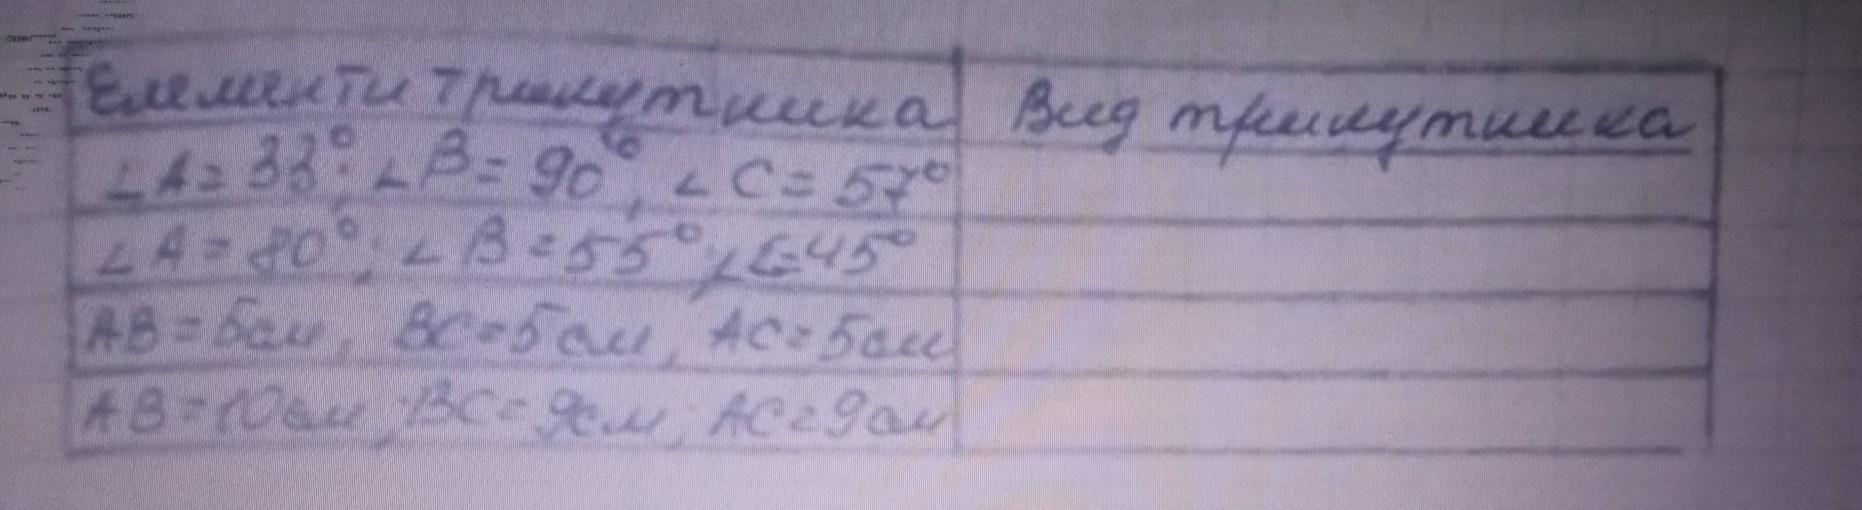 Елементи трикутника Вид трикутника
∠A = 33°; ∠B = 90°, ∠C = 57°
∠A = 80°; ∠B = 55°, ∠C = 45°
AB = 5см, BC = 5см, AC = 5см
AB = 10см, BC = 9см, AC = 9см